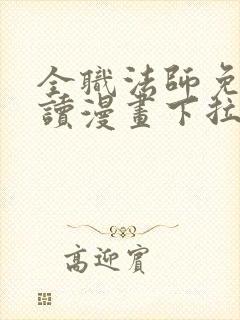 全職法師免
讀漫畫下拉
高迎賓